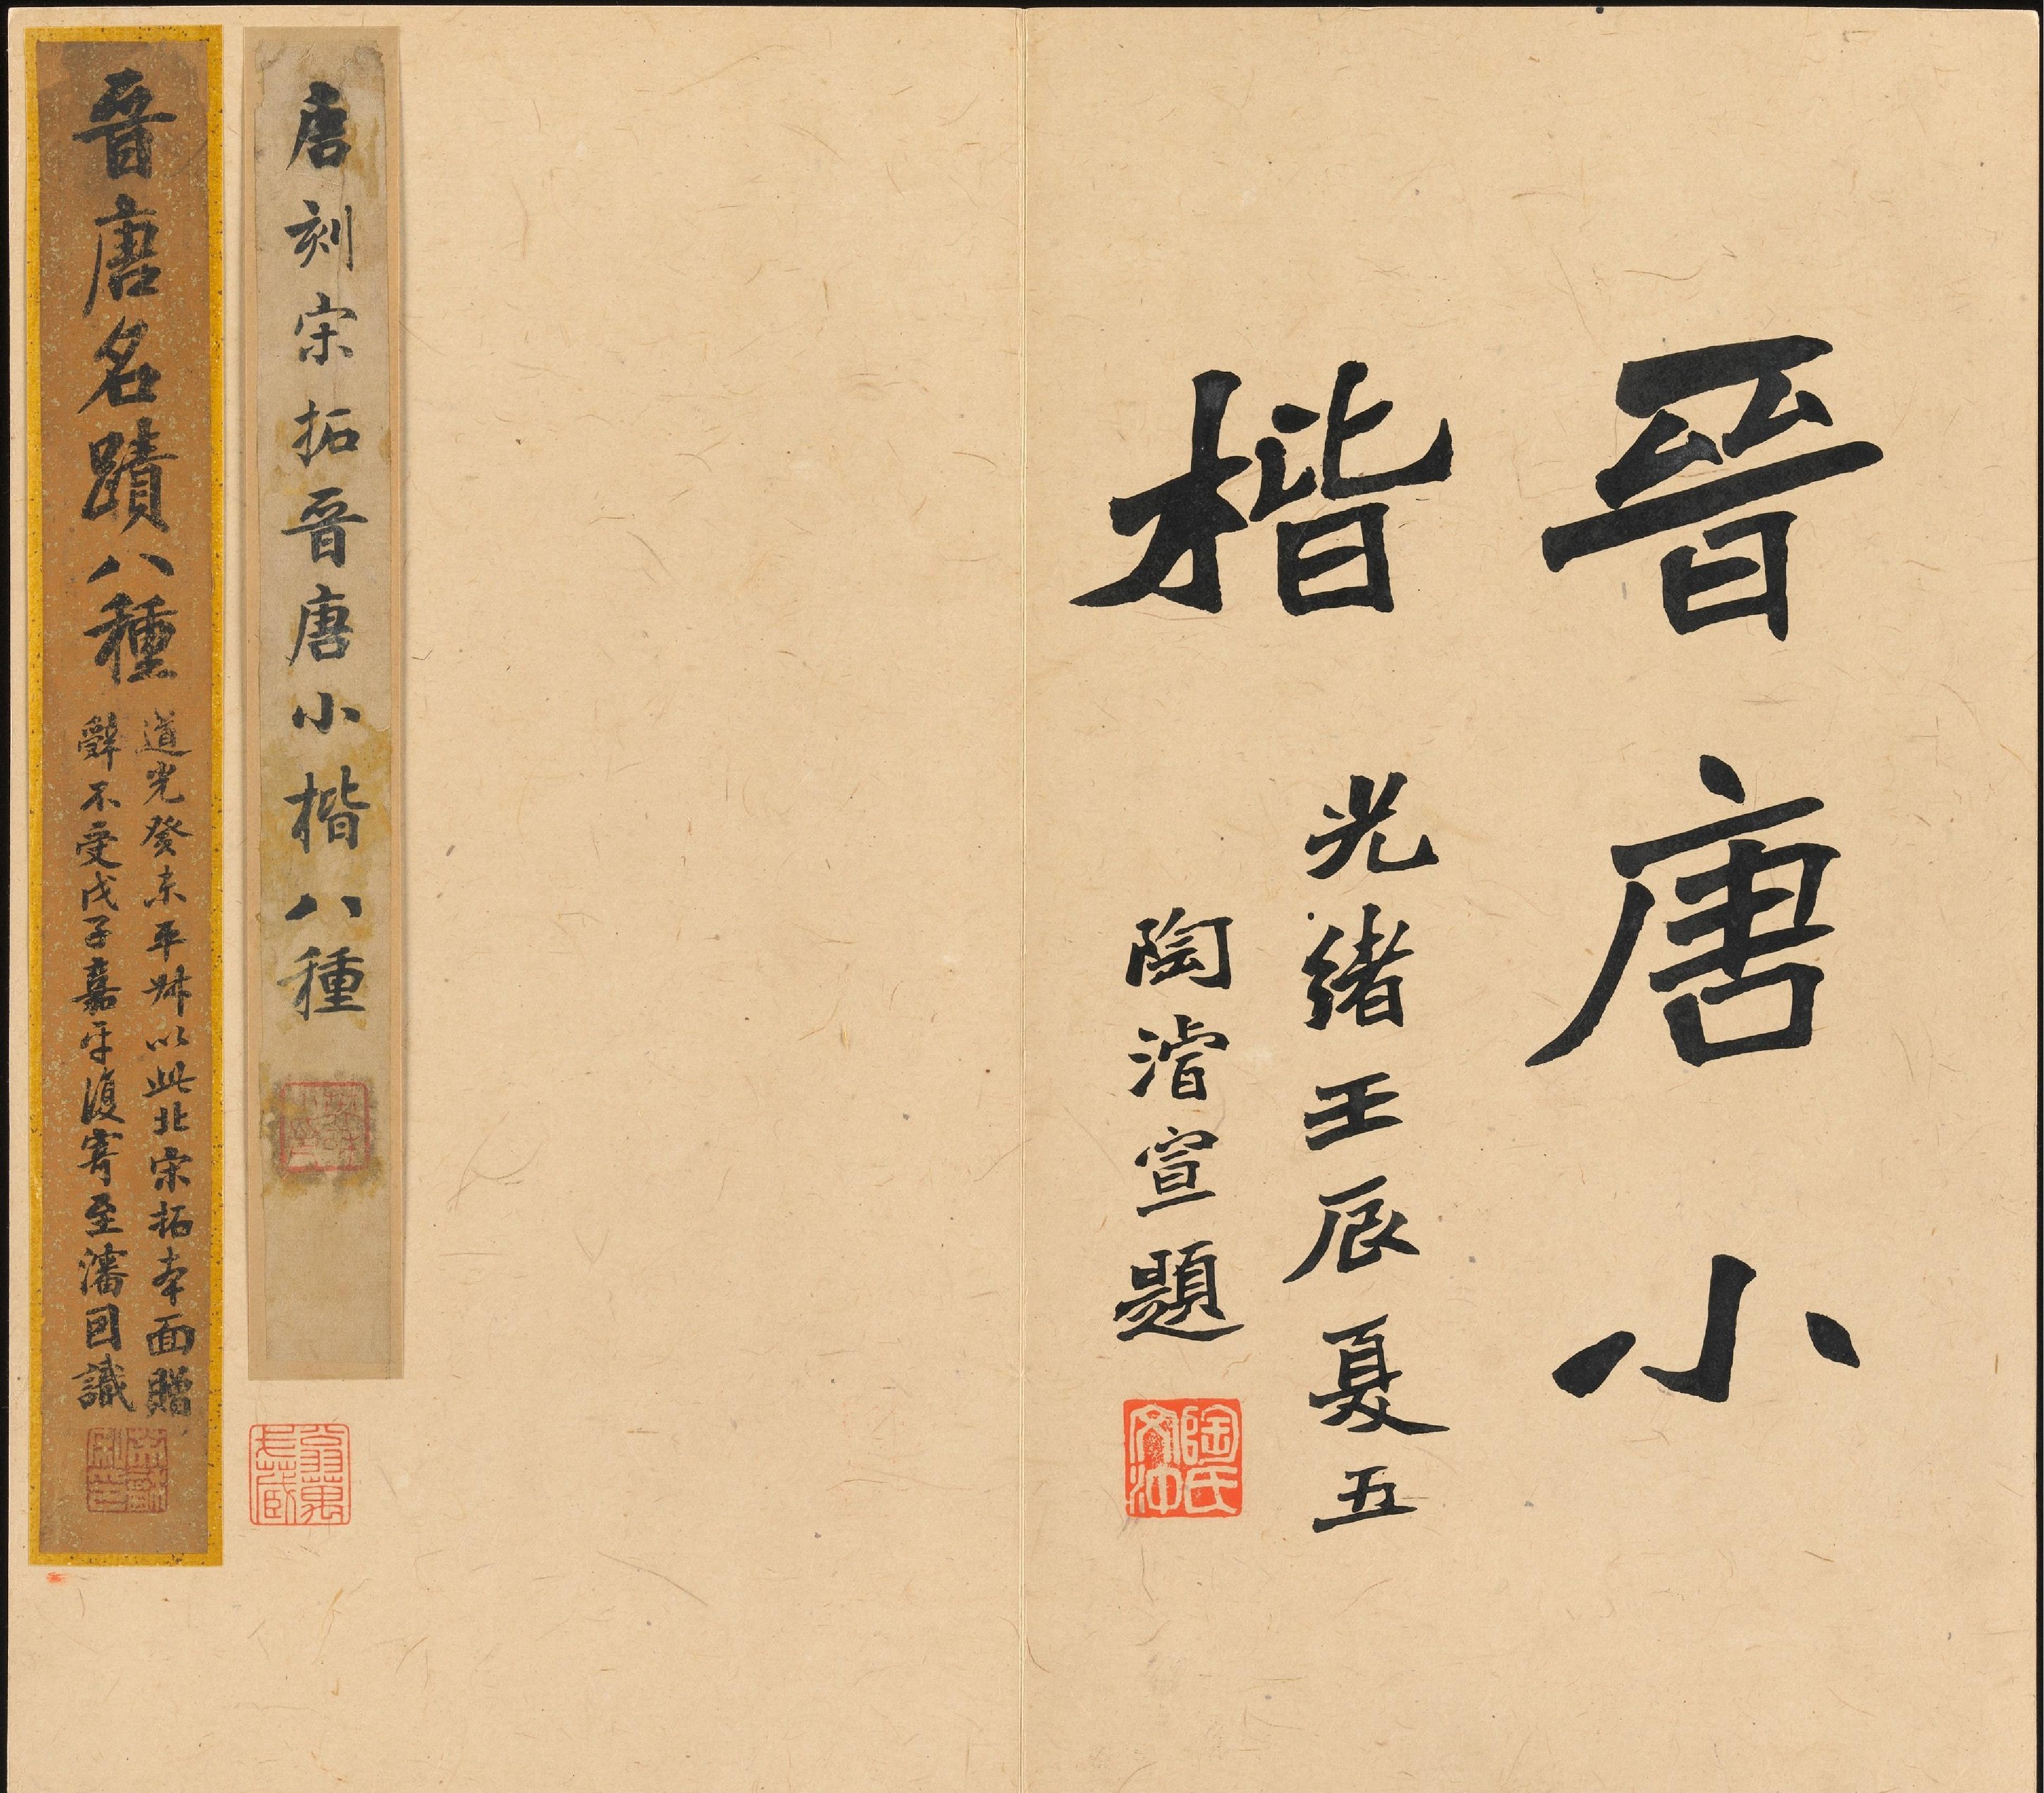 晉唐小
楷
光緒壬辰夏五
陶濬宣題
陶氏文沖
唐刻宋拓晉唐小楷八種
翁萬戈藏
晉唐名蹟八種
道光癸未平叔以此北宋拓本面贈
辭不受戊子嘉平復寄至瀋因識